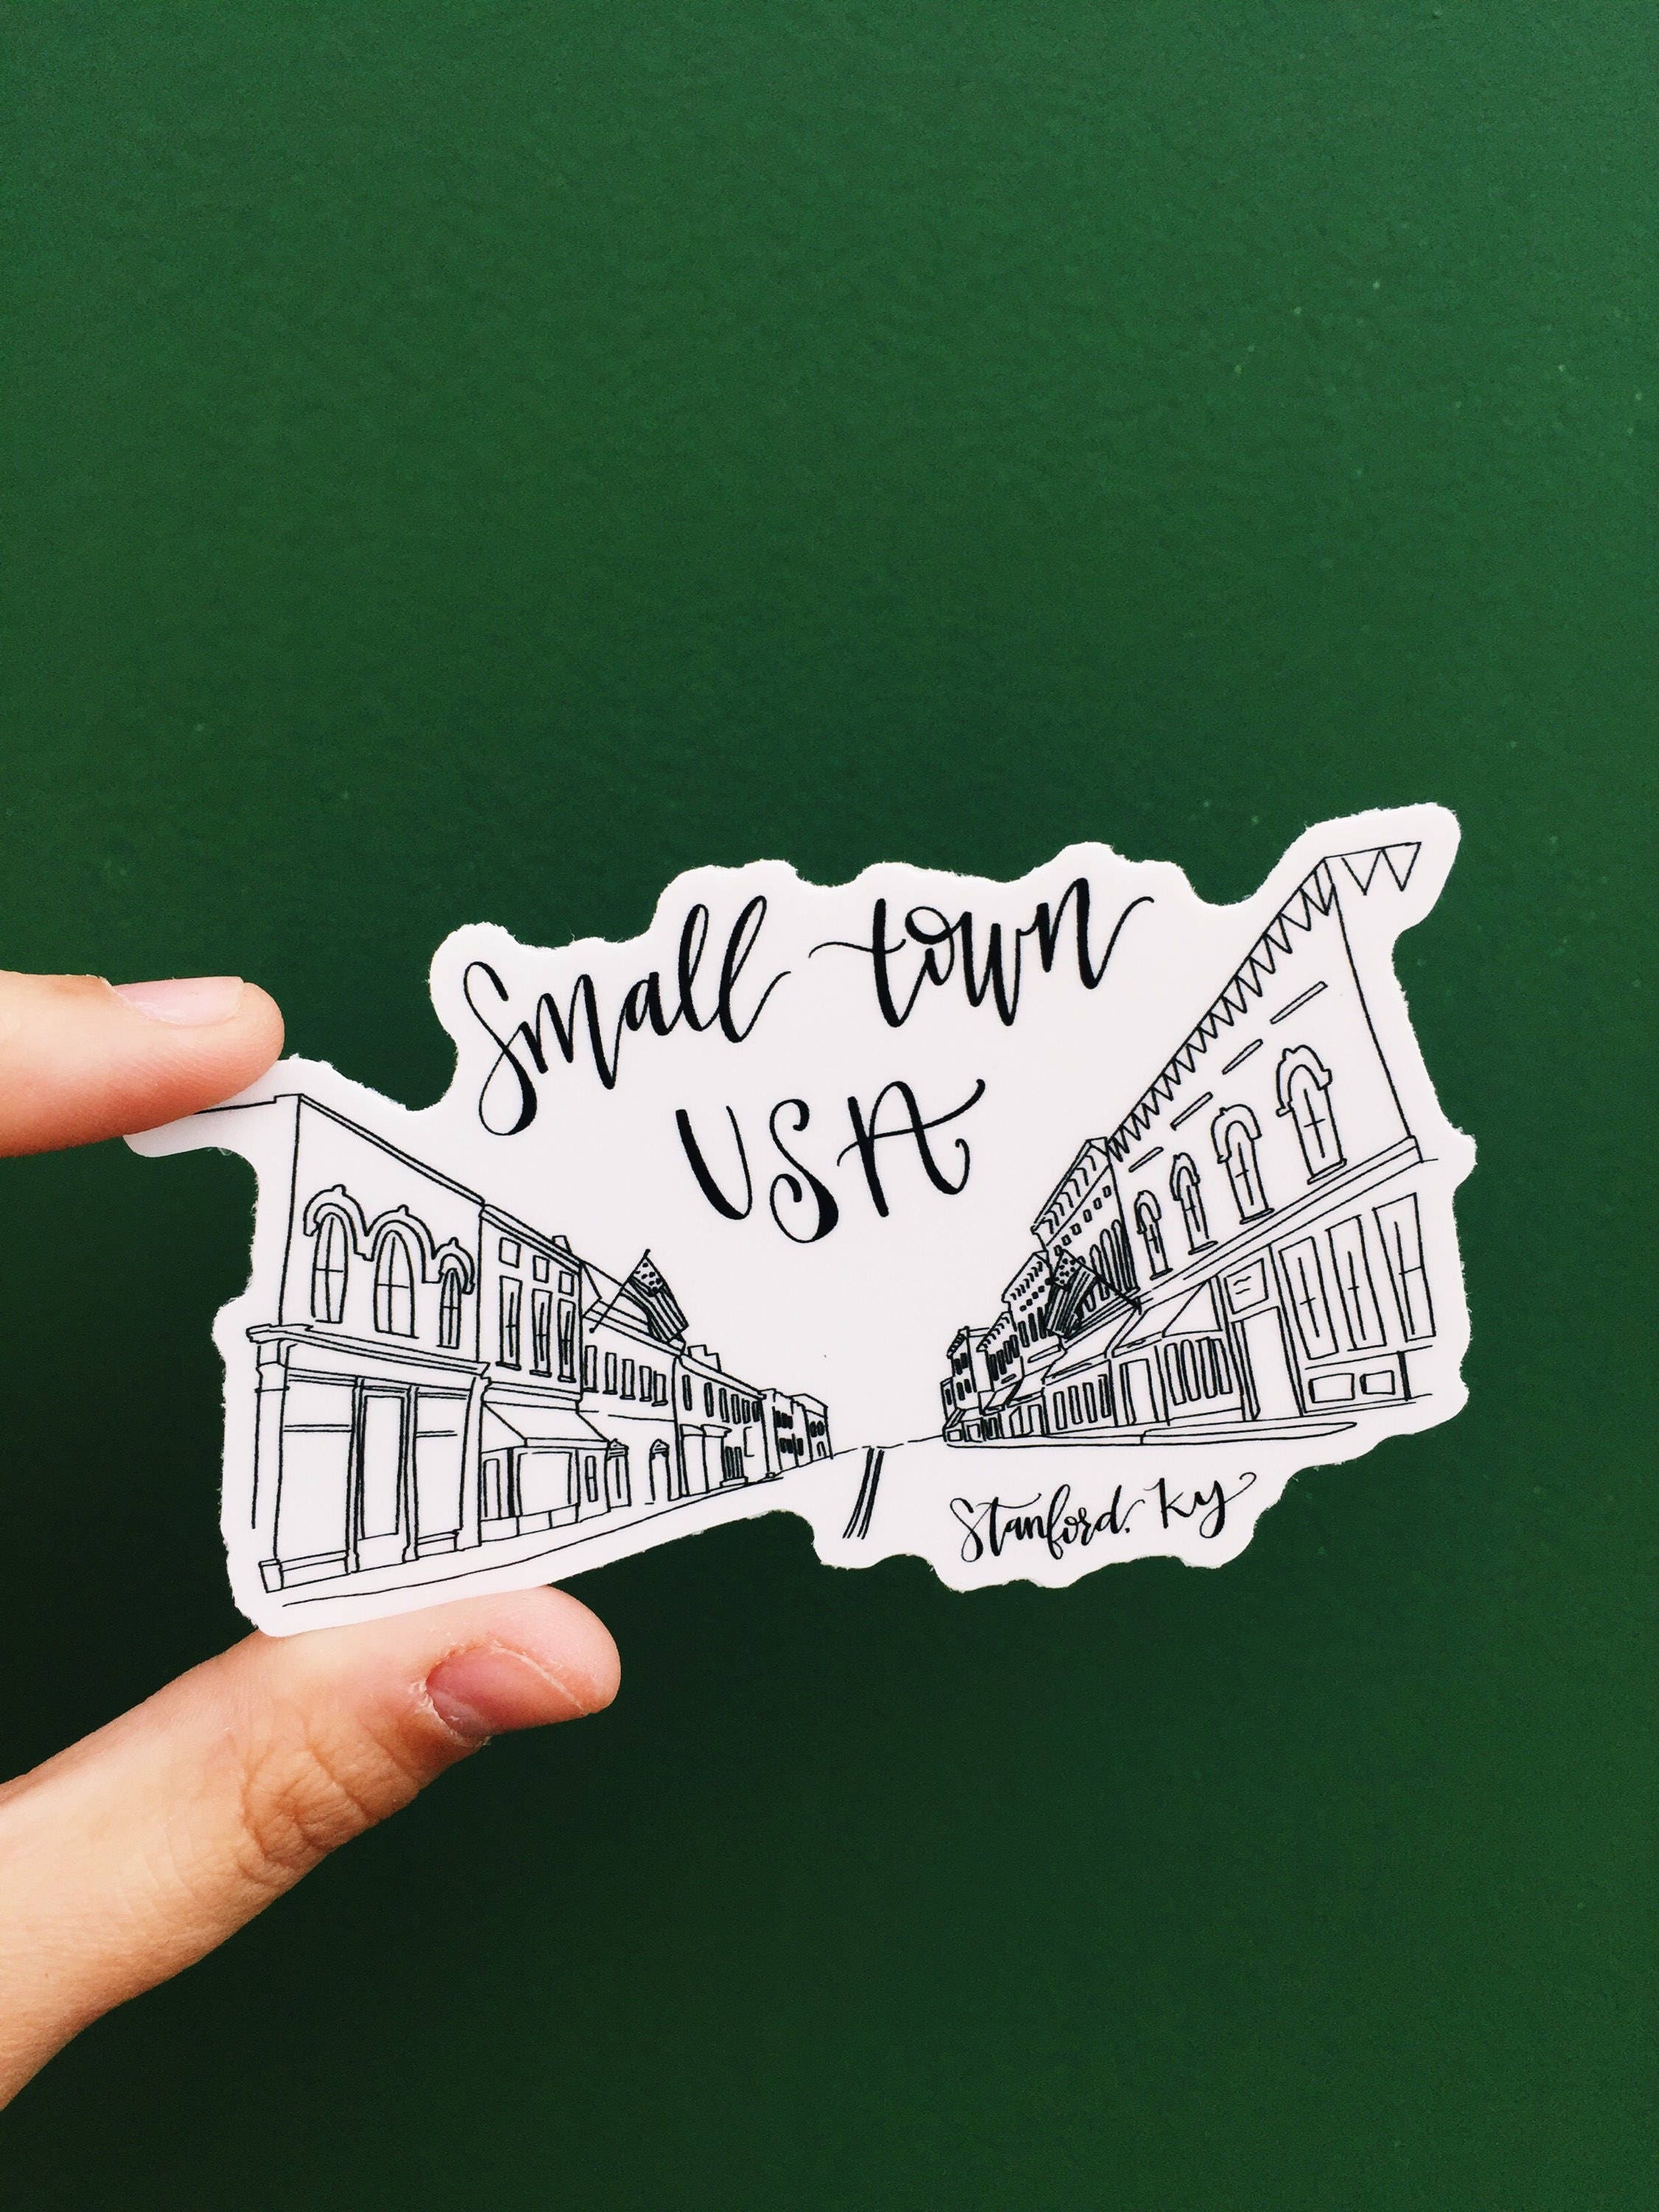 Small town
USA
Stanford, Ky